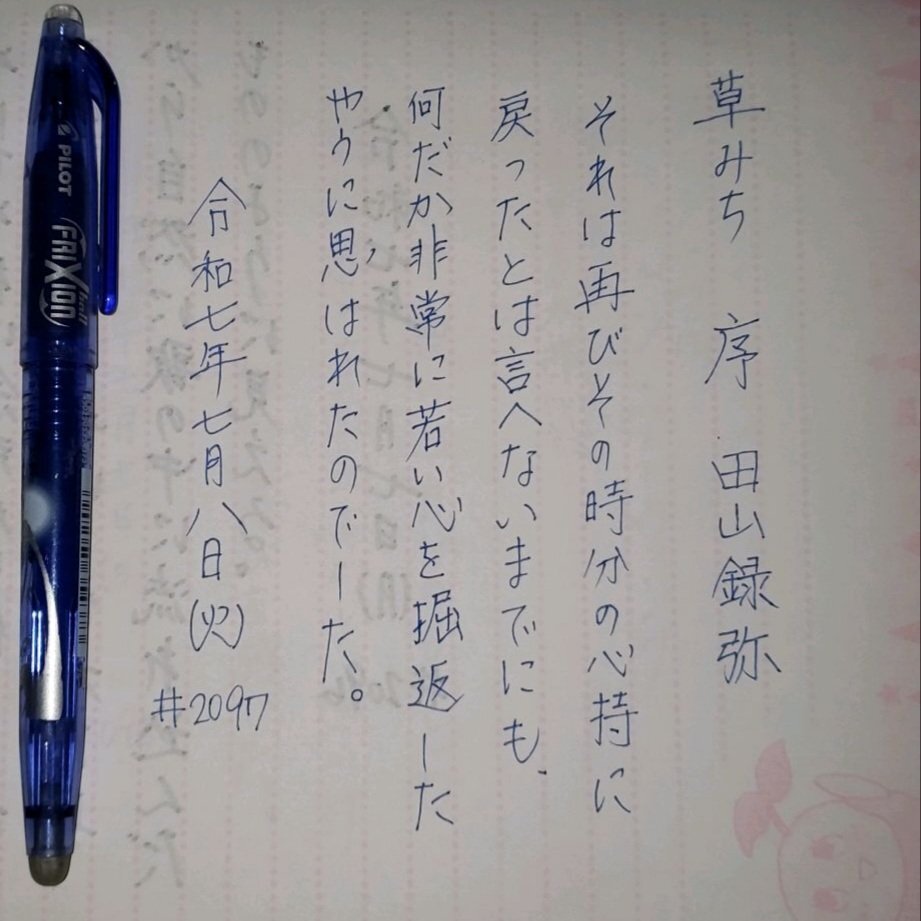 草みち 序 田山録弥
それは再びその時分の心持に
戻ったとは言へないまでにも、
何だか非常に若い心を掘返した
やうに思はれたのでした。
令和七年七月八日(火)
#2097
PILOT
FRIXion ball